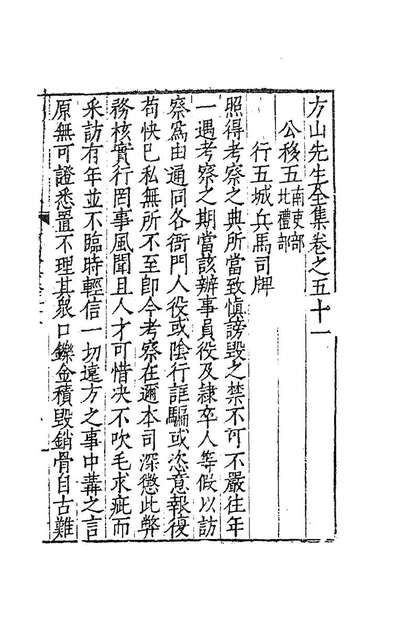 方山先生全集卷之五十一
公移五南吏部北禮部
行五城兵馬司牌
照得考察之典所當致愼謗毁之禁不可不嚴往年
一遇考察之期當該辦事員役及隷卒人等假以訪
察爲由通同各衙門人役或陰行誆騙或恣意報復
苟快已私無所不至即今考察在邇本司深懲此弊
務核實行罔事風聞且人才可惜决不吹毛求疵而
采訪有年並不臨時輕信一切遠方之事中冓之言
原無可證悉置不理其衆口鑠金積毁銷骨自古難